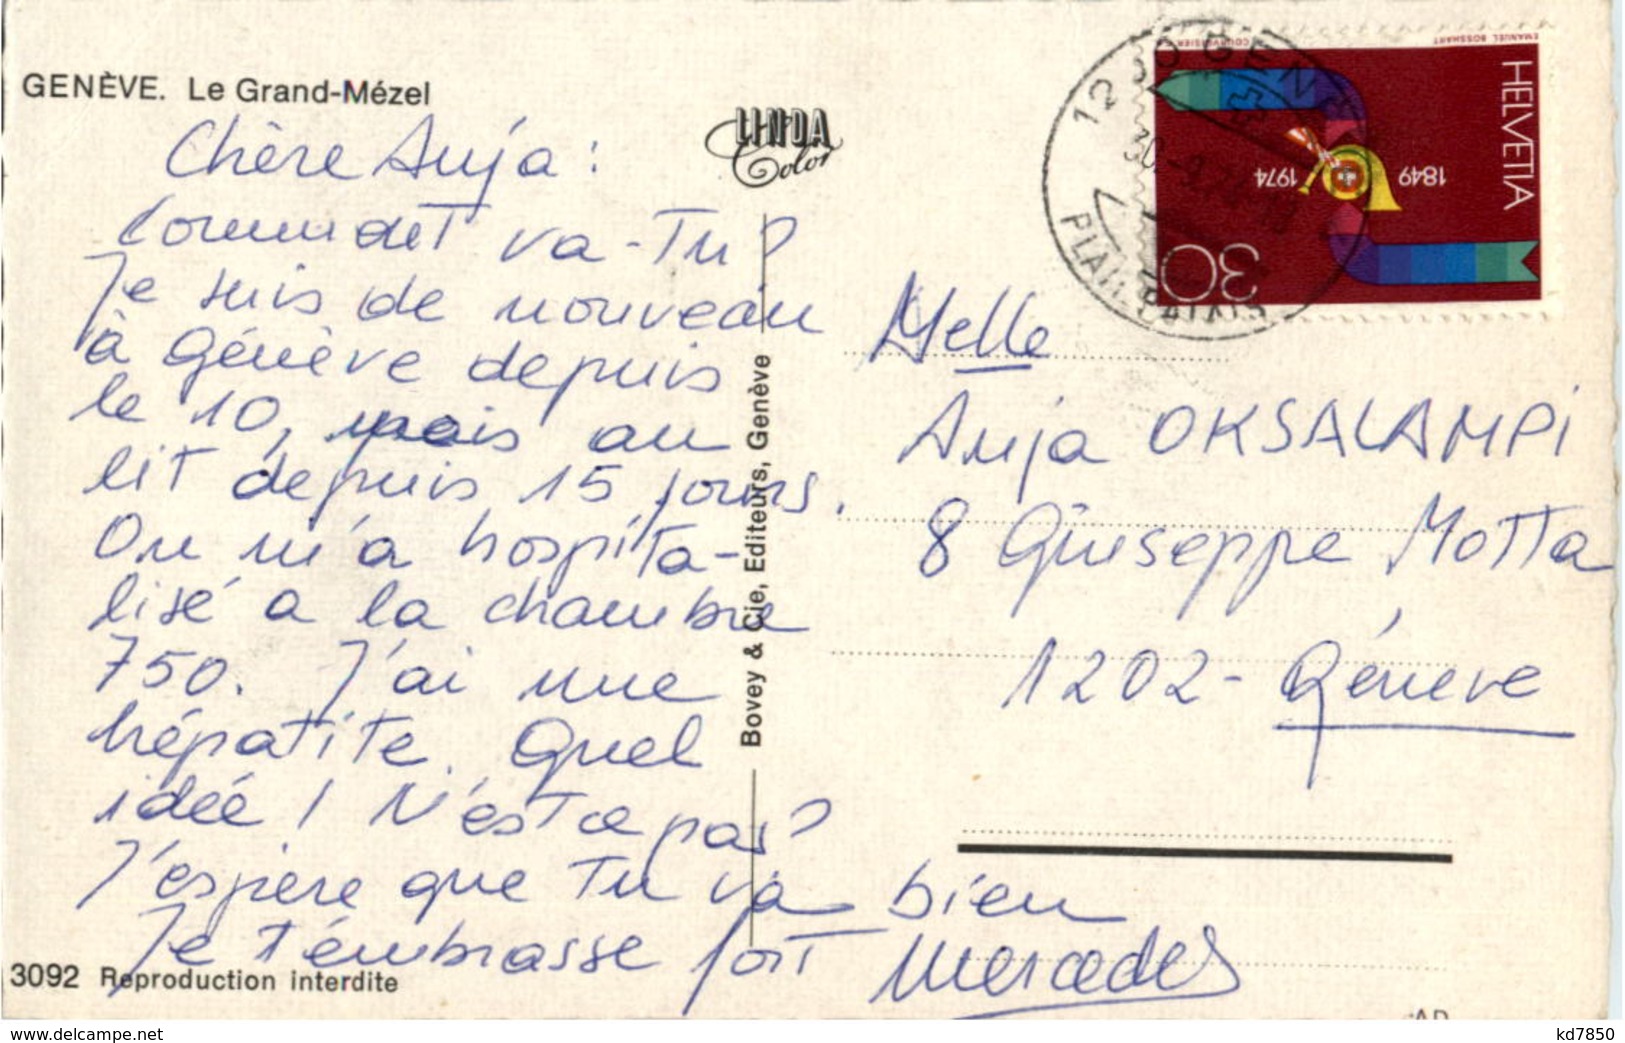 GENÈVE. Le Grand-Mézel
LINDA
Color
Chère Anja :
Comment va-Tu?
Je suis de nouveau
à Génève depuis
le 10, mais au
lit depuis 15 jours.
On m'a hospita-
lisé a la chambre
750. J'ai une
hépatite. Quel
idée! N'est ce pas?
J'espère que Tu va bien
Je t'émbrasse fort
Mercedes
3092 Reproduction interdite
Bovey & Cie, Editeurs, Genève
HELVETIA
1849
1974
30
EMANUEL BOSSHART
COURVOISIER
30.-9.74
PLAINPALAIS
Melle
Anja OKSALAMPI
8 Giuseppe Motta
1202 - Génève
www.delcampe.net
kd7850